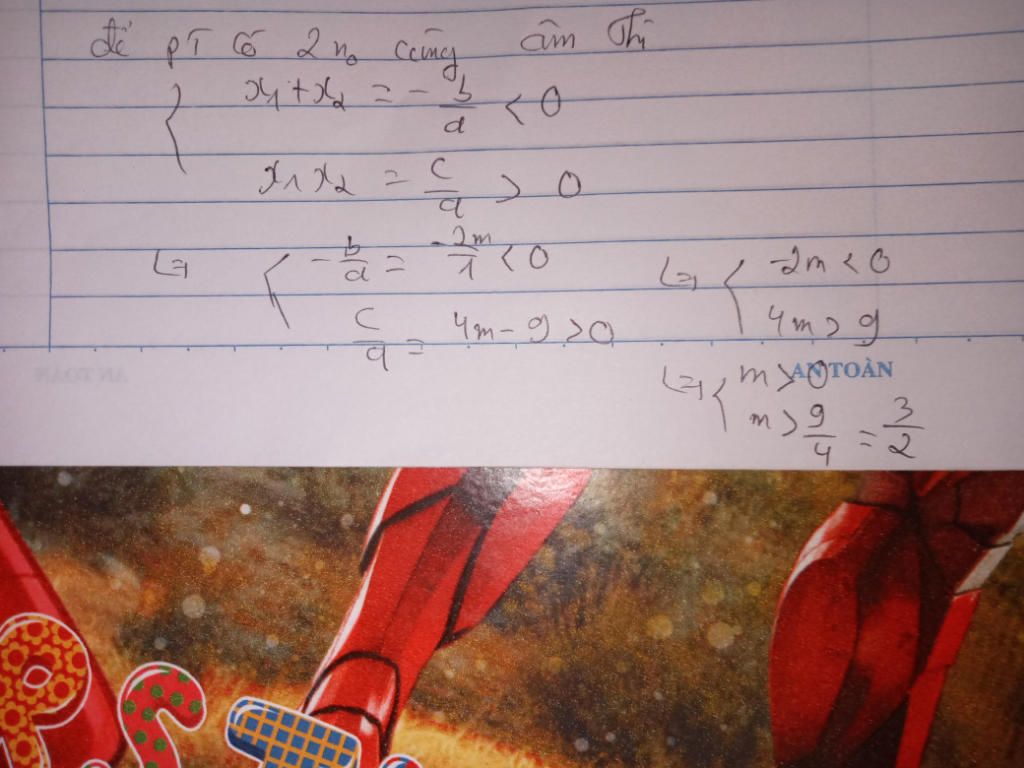 để pT có 2 n₀ cùng âm thì
{ x₁ + x₂ = - b/a < 0
x₁ x₂ = c/a > 0
<=> { - b/a = -2m/1 < 0
c/a = 4m - 9 > 0
<=> { -2m < 0
4m > 9
<=> { m > 0
m > 9/4 = 3/2
AN TOÀN
P